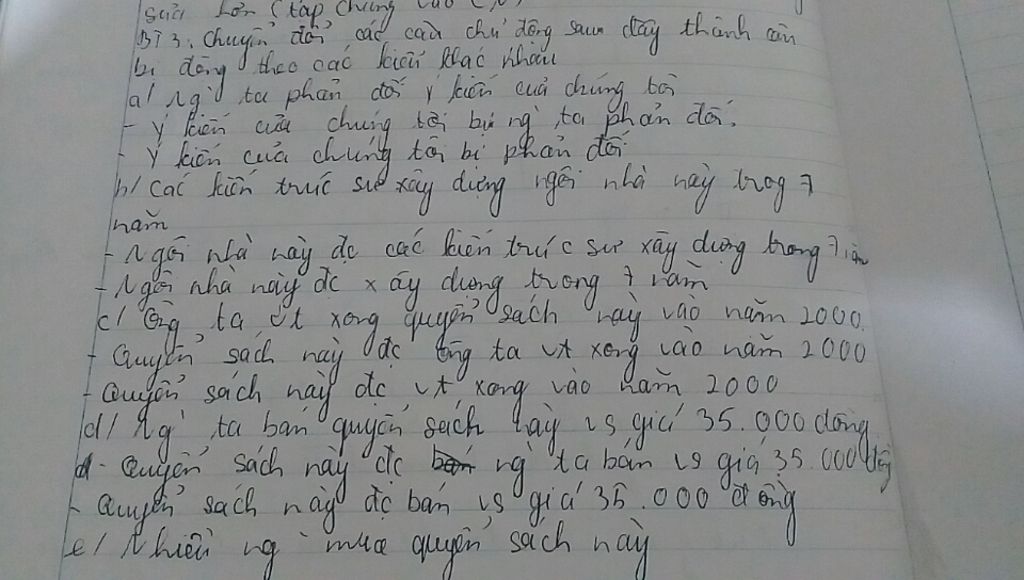 sửa hơn (tập chung vào C,V)
BT3. Chuyển đổi các câu chủ động sau đây thành câu
bị động theo các kiểu khác nhau
a/ Ng` ta phản đối ý kiến của chúng tôi
- ý kiến của chúng tôi bị ng` ta phản đối.
- Ý kiến của chúng tôi bị phản đối
b/ Các kiến trúc sư xây dựng ngôi nhà này trog 7
năm
- Ngôi nhà này đc các kiến trúc sư xây dựng trong 7 năm
- Ngôi nhà này đc xây dựng trong 7 năm
c/ Ông ta vt xong quyển sách này vào năm 2000.
- Quyển sách này đc ông ta vt xong vào năm 2000
- Quyển sách này đc vt xong vào năm 2000
d/ Ng` ta bán quyển sách này vs giá 35.000 đồng
- Quyển sách này đc ng` ta bán vs giá 35.000 đồng
- Quyển sách này đc bán vs giá 35.000 đồng
e/ Nhiều ng` mua quyển sách này